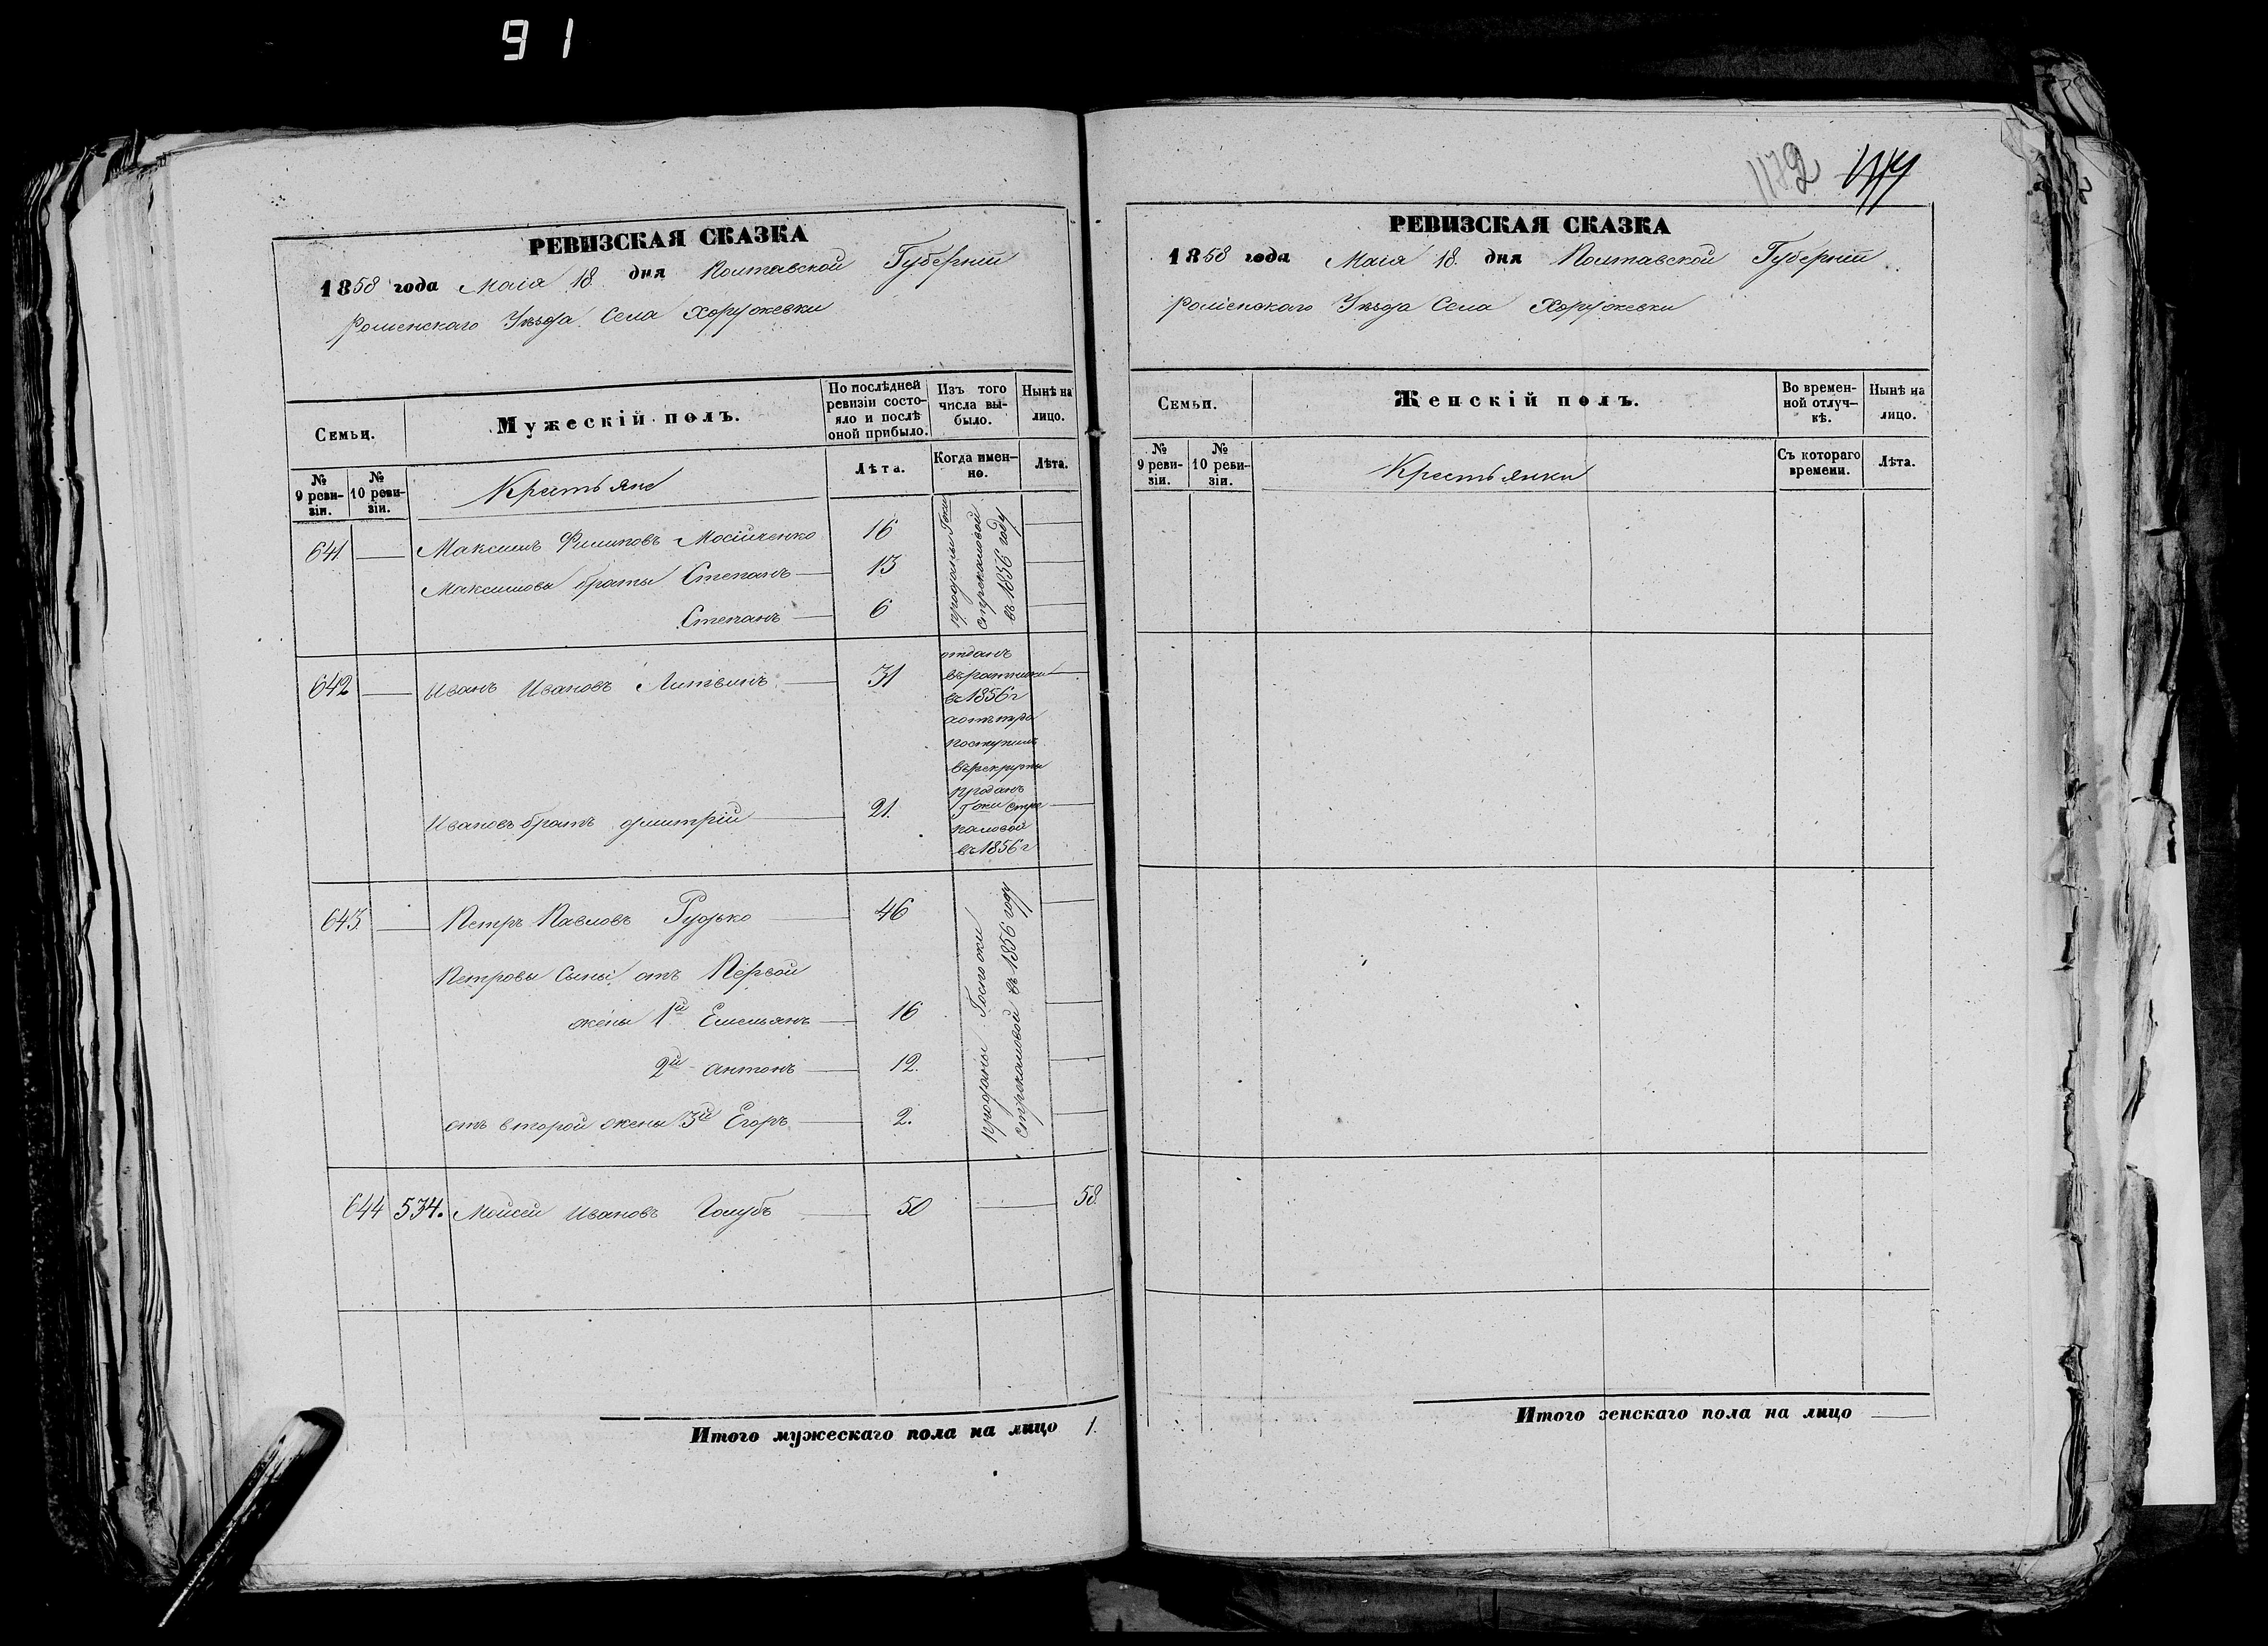 91
РЕВИЗСКАЯ СКАЗКА
1858 года Маія 18 дня Полтавской Губерніи
Роменскаго Уѣзда Села Хоружевки
Семьи.
Мужескій полъ.
По послѣдней ревизіи состояло и послѣ оной прибыло.
Изъ того числа выбыло.
Нынѣ на лицо.
№ 9 ревизіи.
№ 10 ревизіи.
Крестьяне
Лѣта.
Когда именно.
Лѣта.
641 — Максимъ Филиповъ Мосійченко 16
Максимовы браты Степанъ — 13
Степанъ — 6
проданы Гжи
стрекаловой
въ 1856 году
642 — Иванъ Ивановъ Литвинъ — 31
отданъ
въ ратники
въ 1856 г
поступилъ
въ рекруты
Ивановъ братъ Дмитрій — 21.
проданъ
Гжи стре
каловой
въ 1856 г
643. — Петръ Павловъ Рудько — 46
Петровы Сыны отъ Первой
жены 1й Емельянъ — 16
2й Антонъ — 12.
отъ второй жены 3й Егоръ — 2.
проданы Госпожи
стрекаловой въ 1856 году
644 534. Мойсей Ивановъ Голубъ — 50 — 58.
Итого мужескаго пола на лицо 1.
1172
РЕВИЗСКАЯ СКАЗКА
1858 года Маія 18 дня Полтавской Губерніи
Роменскаго Уѣзда Села Хоружевки
Семьи.
Женскій полъ.
Во временной отлучкѣ.
Нынѣ на лицо.
№ 9 ревизіи.
№ 10 ревизіи.
Крестьянки
Съ котораго времени.
Лѣта.
Итого женскаго пола на лицо —